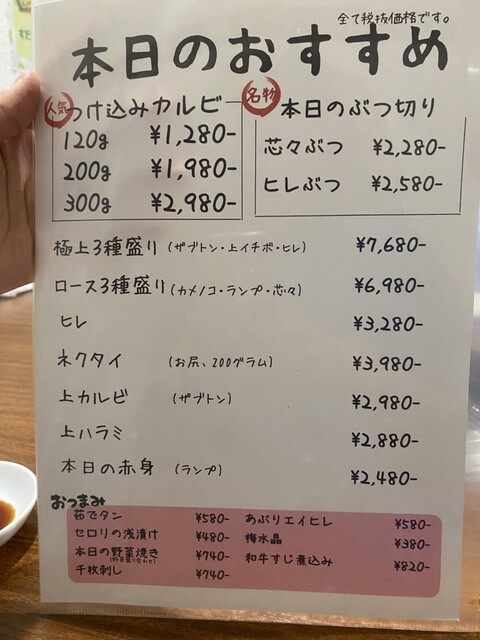 全て税抜価格です。
本日のおすすめ
人気 つけ込みカルビ
120g ¥1,280-
200g ¥1,980-
300g ¥2,980-
名物 本日のぶつ切り
芯々ぶつ ¥2,280-
ヒレぶつ ¥2,580-
極上3種盛り (ザブトン・上イチボ・ヒレ) ¥7,680-
ロース3種盛り (カメノコ・ランプ・芯々) ¥6,980-
ヒレ ¥3,280-
ネクタイ (お尻、200グラム) ¥3,980-
上カルビ (ザブトン) ¥2,980-
上ハラミ ¥2,880-
本日の赤身 (ランプ) ¥2,480-
おつまみ
茹でタン ¥580-
セロリの浅漬け ¥480-
本日の野菜焼き ¥740-
千枚刺し ¥740-
あぶりエイヒレ ¥580-
梅水晶 ¥380-
和牛すじ煮込み ¥820-